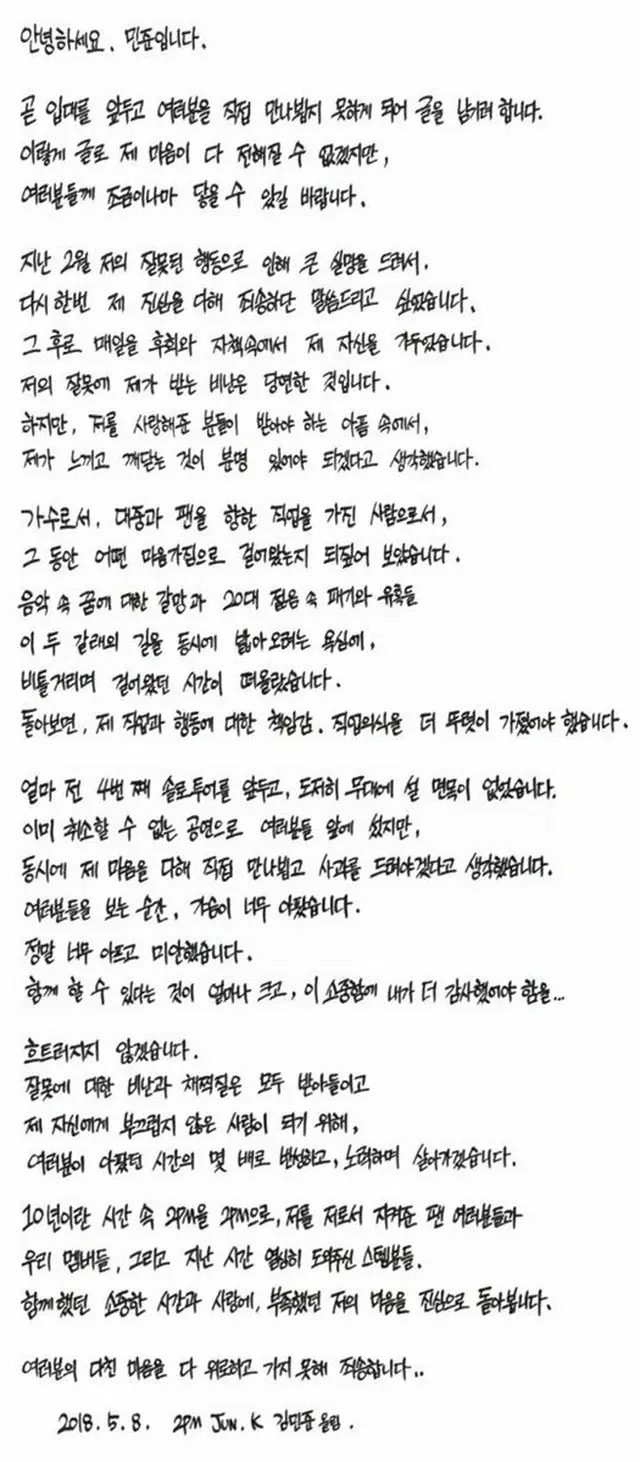 안녕하세요. 민준입니다.
곧 입대를 앞두고 여러분을 직접 만나뵙지 못하게 되어 글을 남기려 합니다.
이렇게 글로 제 마음이 다 전해질 수 없겠지만,
여러분들께 조금이나마 닿을 수 있길 바랍니다.
지난 2월 저의 잘못된 행동으로 인해 큰 실망을 드려서.
다시 한번 제 진심을 다해 죄송하단 말씀드리고 싶었습니다.
그 후로 매일을 후회와 자책속에서 제 자신을 가두었습니다.
저의 잘못에 제가 받는 비난은 당연한 것입니다.
하지만, 저를 사랑해준 분들이 받아야 하는 아픔 속에서,
제가 느끼고 깨닫는 것이 분명 있어야 되겠다고 생각했습니다.
가수로서. 대중과 팬을 향한 직업을 가진 사람으로서,
그 동안 어떤 마음가짐으로 걸어왔는지 되짚어 보았습니다.
음악 속 꿈에 대한 갈망과 20대 젊음 속 패기와 유혹들
이 두 갈래의 길을 동시에 밟아오려는 욕심에,
비틀거리며 걸어왔던 시간이 떠올랐습니다.
돌아보면, 제 직업과 행동에 대한 책임감. 직업의식을 더 뚜렷이 가졌어야 했습니다.
얼마 전 4번 째 솔로투어를 앞두고, 도저히 무대에 설 면목이 없었습니다.
이미 취소할 수 없는 공연으로 여러분들 앞에 섰지만,
동시에 제 마음을 다해 직접 만나뵙고 사과를 드려야겠다고 생각했습니다.
여러분들을 보는 순간, 가슴이 너무 아팠습니다.
정말 너무 아프고 미안했습니다.
함께 할 수 있다는 것이 얼마나 크고, 이 소중함에 내가 더 감사했어야 함을...
흐트러지지 않겠습니다.
잘못에 대한 비난과 채찍질은 모두 받아들이고
제 자신에게 부끄럽지 않은 사람이 되기 위해,
여러분이 아팠던 시간의 몇 배로 반성하고, 노력하며 살아가겠습니다.
10년이란 시간 속 2PM을 2PM으로, 저를 저로서 지켜준 팬 여러분들과
우리 멤버들, 그리고 지난 시간 열심히 도와주신 스텝분들.
함께했던 소중한 시간과 사랑에, 부족했던 저의 마음을 진심으로 돌아봅니다.
여러분의 다친 마음을 다 위로하고 가지 못해 죄송합니다..
2018. 5. 8. 2PM JUN. K 김민준 올림.